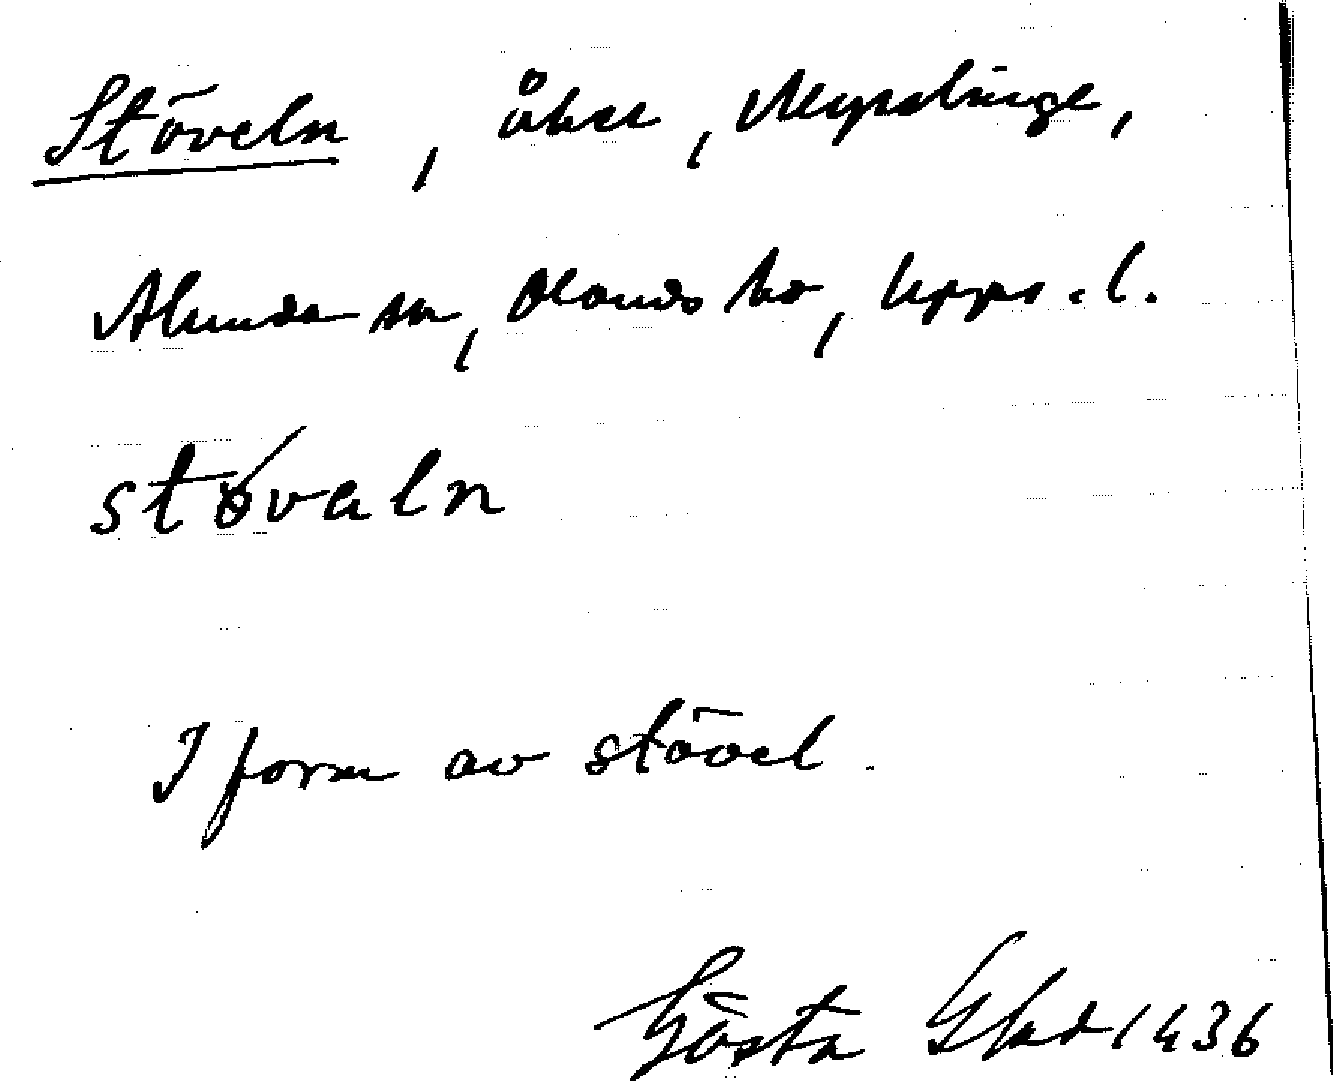 Stöveln, åker, Myrslinge,
Alunda sn, Olands hd, Upps. l.
støvaln
I form av stövel.
Gösta 1936